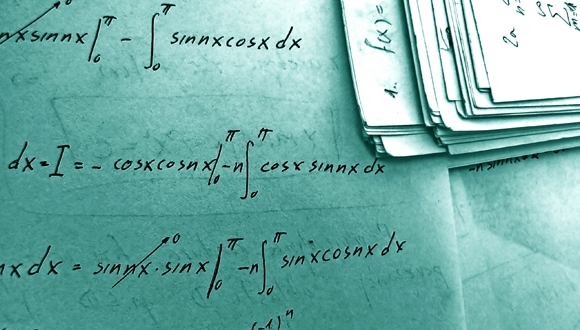 nxsinnx|₀^π − ∫₀^π sinnxcosxdx
dx = I = − cosxcosnx|₀^π − n∫₀^π cosx sinnxdx
nxdx = sinnx·sinx|₀^π − n∫₀^π sinxcosnxdx
(-1)ⁿ
1. f(x) =